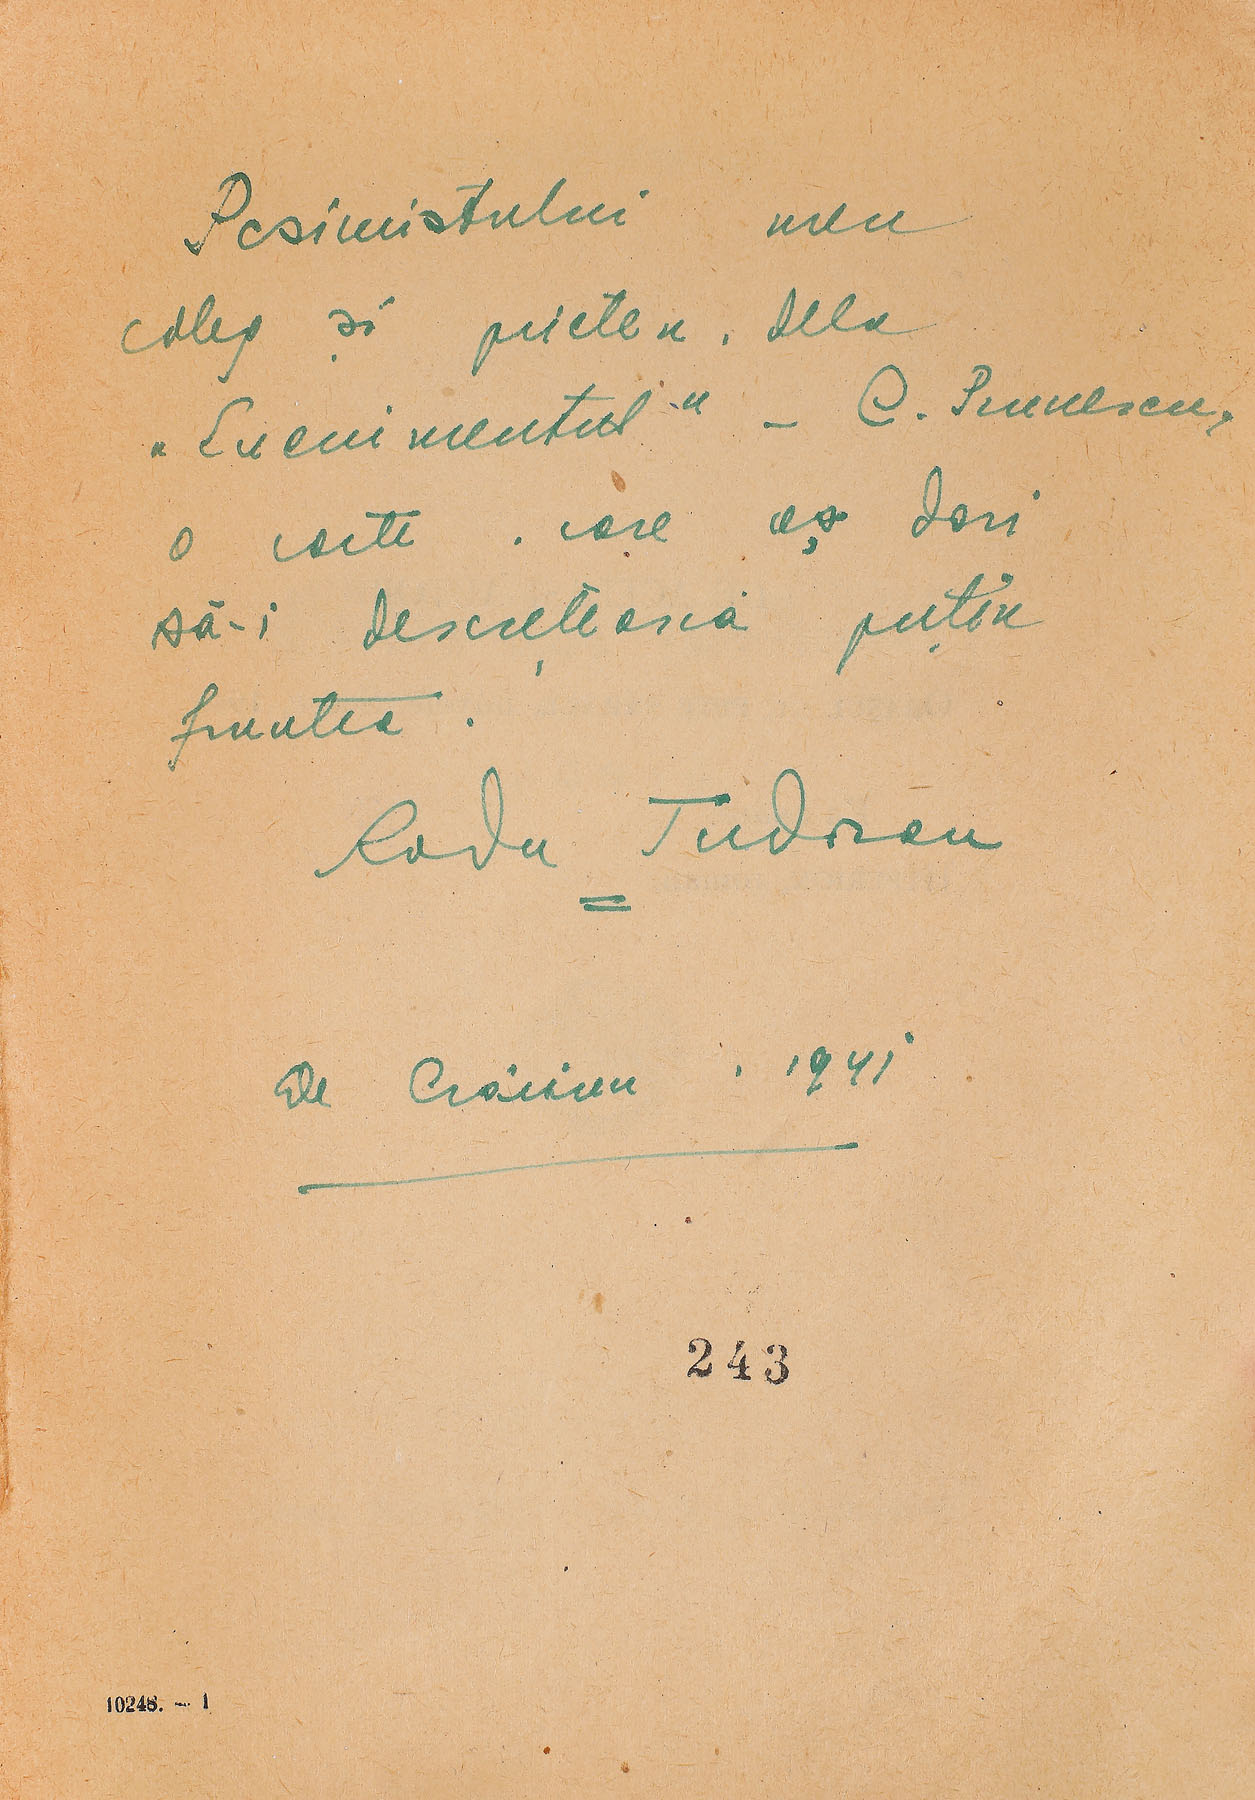 Pesimistului meu
coleg și prieten, dela
„Evenimentul" – C. Prunescu,
o carte, care aș dori
să-i descrețească puțin
fruntea.
Radu Tudoran
De Crăciun, 1941
243
10248. — 1